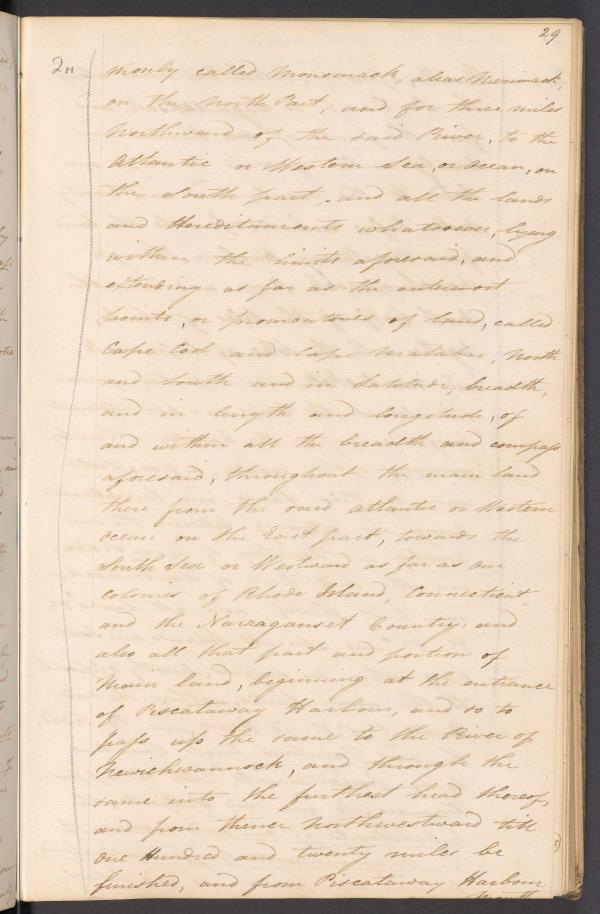 29
2n
monly called Monomack, alias Merimack,
on the North Part, and for three miles
Northward of the said River, to the
Atlantic or Western Sea, or Ocean, on
the South part, and all the lands
and Hereditaments whatsoever, lying
within the limits aforesaid, and
extending as far as the outermost
points, or promontories of land, called
Cape Cod and Cape Malabar, North
and South and in Latitude, breadth,
and in length and longitude, of
and within all the breadth and compass
aforesaid, throughout the main land
there from the said atlantic or Western
Ocean on the East part, towards the
South Sea or Westward as far as our
colonies of Rhode Island, Connecticut,
and the Narraganset Country: and
also all that part and portion of
Main land, beginning at the entrance
of Piscataway Harbour, and so to
pass up the same to the River of
Newichwannock, and through the
same into the furthest head thereof,
and from thence Northwestward till
One Hundred and twenty miles be
finished, and from Piscataway Harbour
Mouth